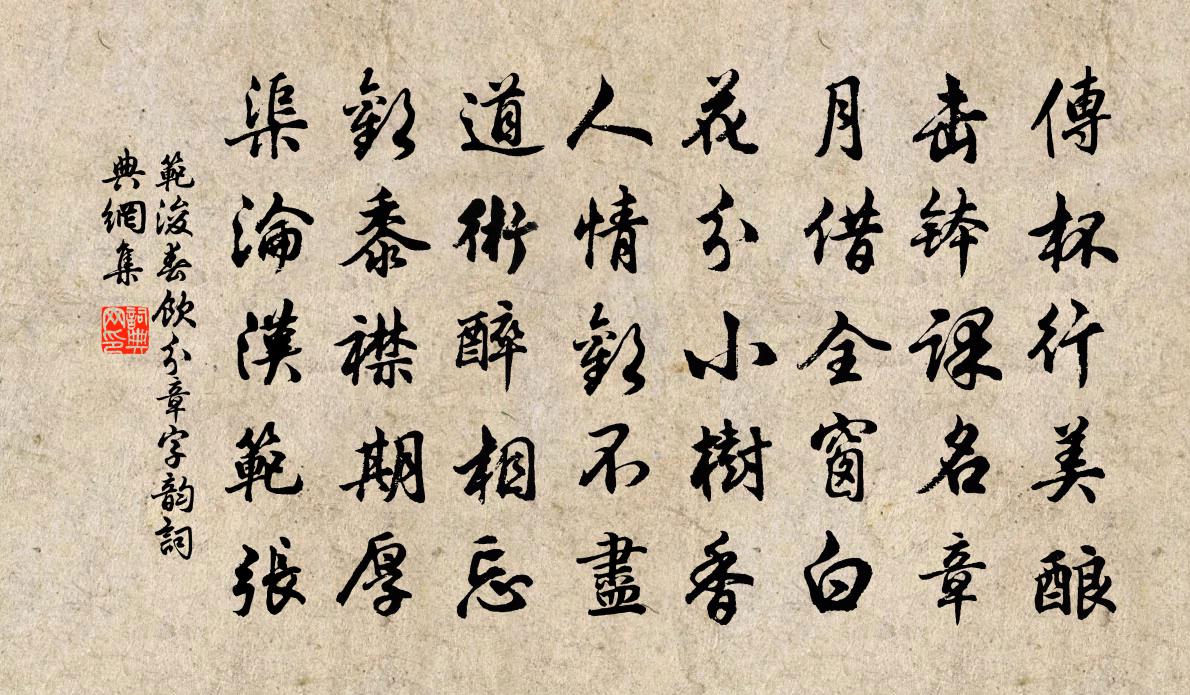 傳杯行美酿
击缽課名章
月借全窗白
花分小樹香
人情歡不盡
道術醉相忘
歡黍襟期厚
渠淪漢範張
範浚春飲分章字韵詞
典網集
詞典網印